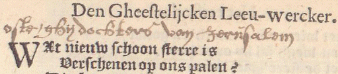 Den Gheestelijcken Leeu-wercker.
oft ghij dochters van Jerusalem
WAt nieuw schoon sterre is
Verschenen op ons palen?